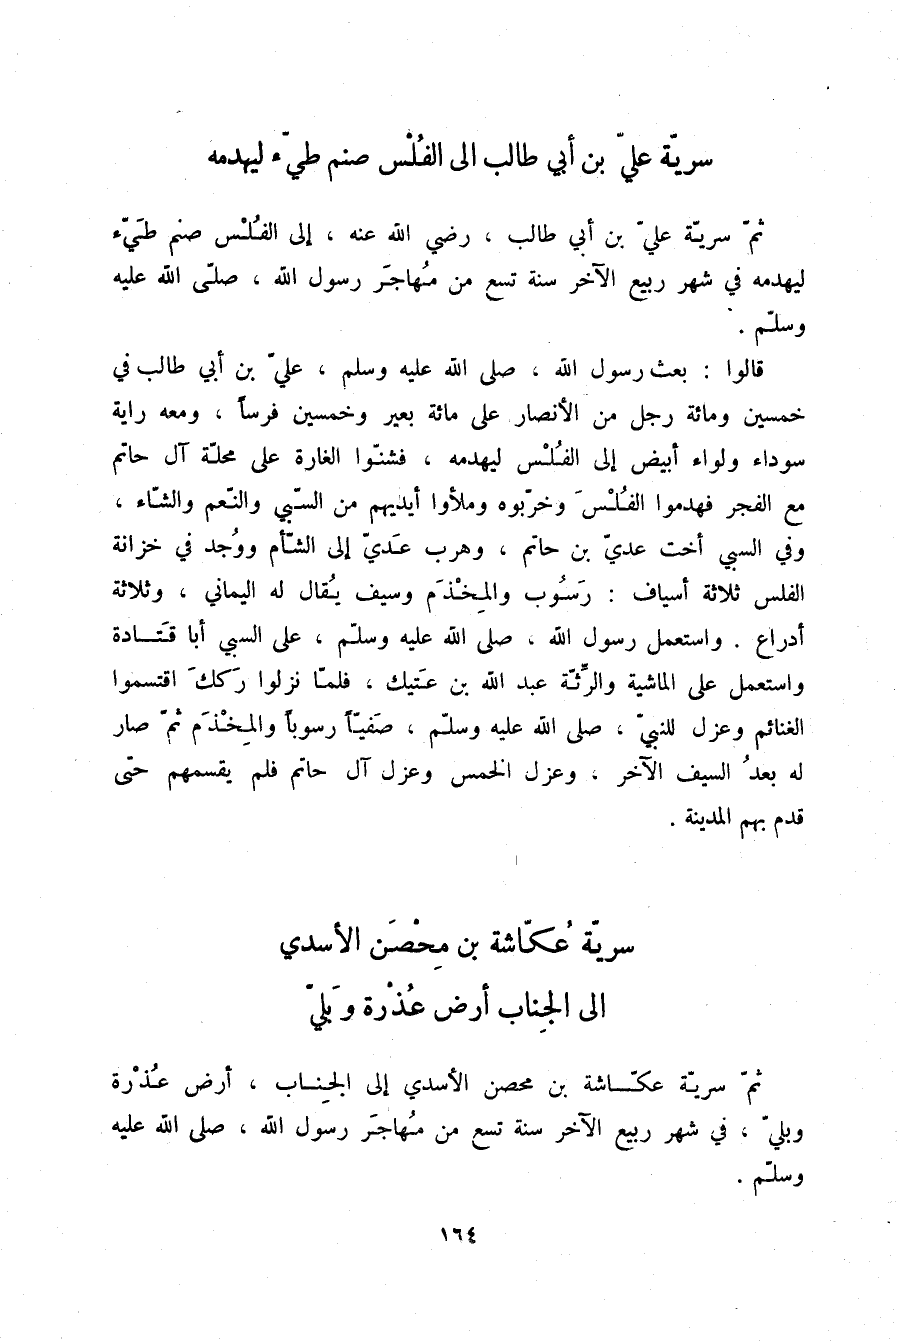 سريّة عليّ بن أبي طالب الى الفُلْس صنم طيّء ليهدمه
ثمّ سريّة عليّ بن أبي طالب ، رضي الله عنه ، إلى الفُلْس صنم طَيّء
ليهدمه في شهر ربيع الآخر سنة تسع من مُهاجَر رسول الله ، صلّى الله عليه
وسلّم .
قالوا : بعث رسول الله ، صلى الله عليه وسلم ، عليّ بن أبي طالب في
خمسين ومائة رجل من الأنصار على مائة بعير وخمسين فرساً ، ومعه راية
سوداء ولواء أبيض إلى الفُلْس ليهدمه ، فشنّوا الغارة على محلّة آل حاتم
مع الفجر فهدموا الفُلْسَ وخرّبوه وملأوا أيديهم من السّبي والنّعم والشّاء ،
وفي السبي أخت عديّ بن حاتم ، وهرب عَديّ إلى الشّأم ووُجد في خزانة
الفلس ثلاثة أسياف : رَسُوب والمِخْذَم وسيف يُقال له اليماني ، وثلاثة
أدراع . واستعمل رسول الله ، صلى الله عليه وسلّم ، على السبي أبا قَتادة
واستعمل على الماشية والرِّثّة عبد الله بن عَتيك ، فلمّا نزلوا رَكَكَ اقتسموا
الغنائم وعزل للنبيّ ، صلى الله عليه وسلّم ، صَفيّاً رسوباً والمِخْذَم ثمّ صار
له بعدُ السيف الآخر ، وعزل الخمس وعزل آل حاتم فلم يقسمهم حتّى
قدم بهم المدينة .
سريّة عُكّاشة بن مِحْصَن الأسدي
الى الجِناب أرض عُذْرة وبَليّ
ثمّ سريّة عكّاشة بن محصن الأسدي إلى الجِناب ، أرض عُذْرة
وبليّ ، في شهر ربيع الآخر سنة تسع من مُهاجَر رسول الله ، صلى الله عليه
وسلّم .
١٦٤